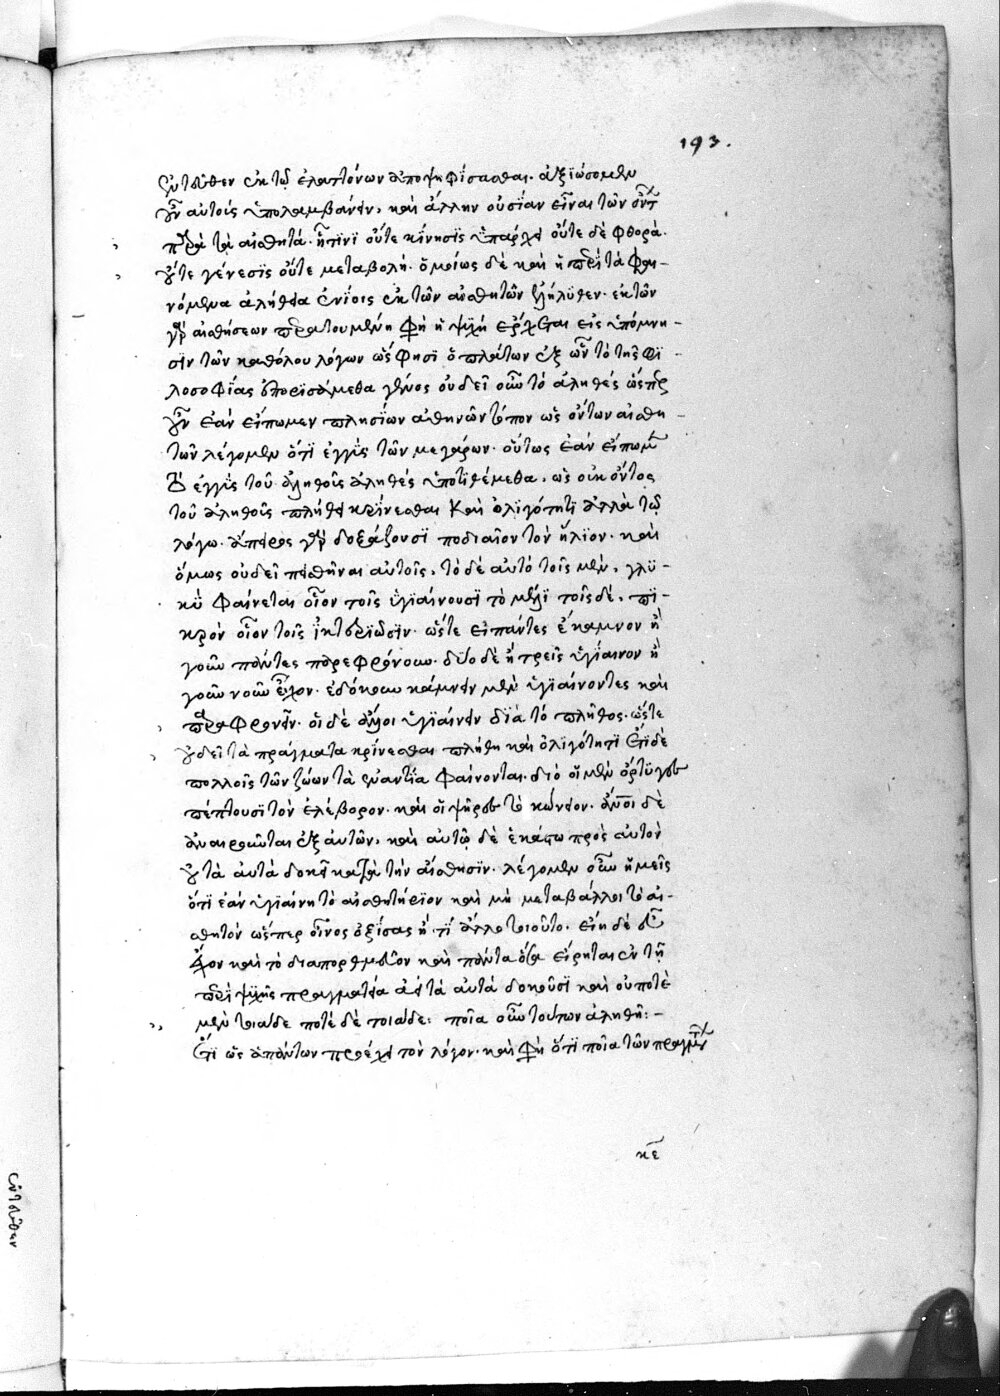 193.
ἐντεῦθεν ἐκ τῶν ἐλαττόνων ἀποψηφίσασθαι. ἀξιώσομεν
οὖν αὐτοὺς ὑπολαμβάνειν, καὶ ἄλλην οὐσίαν εἶναι τῶν ὄντων
παρὰ τὰ αἰσθητά. ἥτινι οὔτε κίνησις ὑπάρχει οὔτε δὲ φθορὰ.
οὔτε γένεσις οὔτε μεταβολή. ὁμοίως δὲ καὶ ἡ περὶ τὰ φαι-
νόμενα ἀλήθεια ἐνίοις ἐκ τῶν αἰσθητῶν ἐλήλυθεν. ἐκ τῶν
γὰρ αἰσθήσεων φησὶ ἡ ψυχὴ ἔρχεται εἰς ὑπόμνη-
σιν τῶν καθόλου λόγων ὥς φησι ὁ πλάτων ἐξ ὧν τὸ τῆς φι-
λοσοφίας ἐπορισάμεθα γένος οὐ δεῖ οὖν τὸ ἀληθές ὥσπερ
οὖν ἐὰν εἴπωμεν πλησίον ἀθηνῶν τόπον ὡς ὄντων αἰσθη
τῶν λέγομεν ὅτι ἐγγὺς τῶν μεγάρων. οὕτως ἐὰν εἴπωμεν
τὸ ἐγγὺς τοῦ ἀληθοῦς ἀληθές ὑποτιθέμεθα. ὡς οὐκ ὄντος
τοῦ ἀληθοῦς πλήθει κρίνεσθαι καὶ ὀλιγότητι ἀλλὰ τῷ
λόγω. ἄπειρος γὰρ δοξάζουσι ποδιαῖον τὸν ἥλιον. καὶ
ὅμως οὐ δεῖ πειθῆναι αὐτοῖς, τὸ δὲ αὐτὸ τοῖς μὲν, γλυ-
κὺ φαίνεται οἷον τοῖς ὑγιαίνουσι τὸ μέλι τοῖς δὲ, πι-
κρὸν οἷον τοῖς ἰκτεριῶσιν. ὥστε εἰ πάντες ἔκαμνον ἢ
γοῦν πάντες παρεφρόνουν. δύο δὲ ἢ τρεῖς ὑγίαινον ἢ
γοῦν νοῦν εἶχον. ἐδόκουν κάμνειν μὲν ὑγιαίνοντες καὶ
παραφρονεῖν. οἱ δὲ ἄλλοι ὑγιαίνειν διὰ τὸ πλῆθος. ὥστε
οὐ δεῖ τὰ πράγματα κρίνεσθαι πλήθη καὶ ὀλιγότητι ἔτι δὲ
πολλοῖς τῶν ζώων τὰ ἐναντία φαίνονται. διὸ οἱ μὲν ὄρτυγες
πέπτουσι τὸν ἐλέβορον. καὶ οἱ ψῆρες τὸ κώνειον. ἄνθρωποι δὲ
ἀναιροῦνται ἐξ αὐτῶν, καὶ αὐτῷ δὲ ἑκάστω πρὸς αὑτὸν
οὐ τὰ αὐτὰ δοκεῖ κατὰ τὴν αἴσθησιν. λέγομεν οὖν ἡμεῖς
ὅτι ἐὰν ὑγιαίνη τὸ αἰσθητήριον καὶ μὴ μεταβάλλοι τὸ αἰ-
σθητὸν ὥσπερ οἶνος ὀξίσας ἤ τι ἄλλο τοιοῦτο. εἴη δὲ
καὶ τὸ διαπορθμεῦον καὶ πάντα ὅσα εἴρηται ἐν τῇ
περὶ ψυχῆς πραγματεία ἀεὶ τὰ αὐτὰ δοκοῦσι καὶ οὐ ποτὲ
μὲν τοιάδε ποτὲ δὲ τοιάδε: ποῖα οὖν τούτων ἀληθῆ: –
ἔτι ὡς ἀπάντων προέχει τὸν λόγον. καὶ φησὶ ὅτι ποῖα τῶν πραγμάτων
κε
ἐντεῦθεν